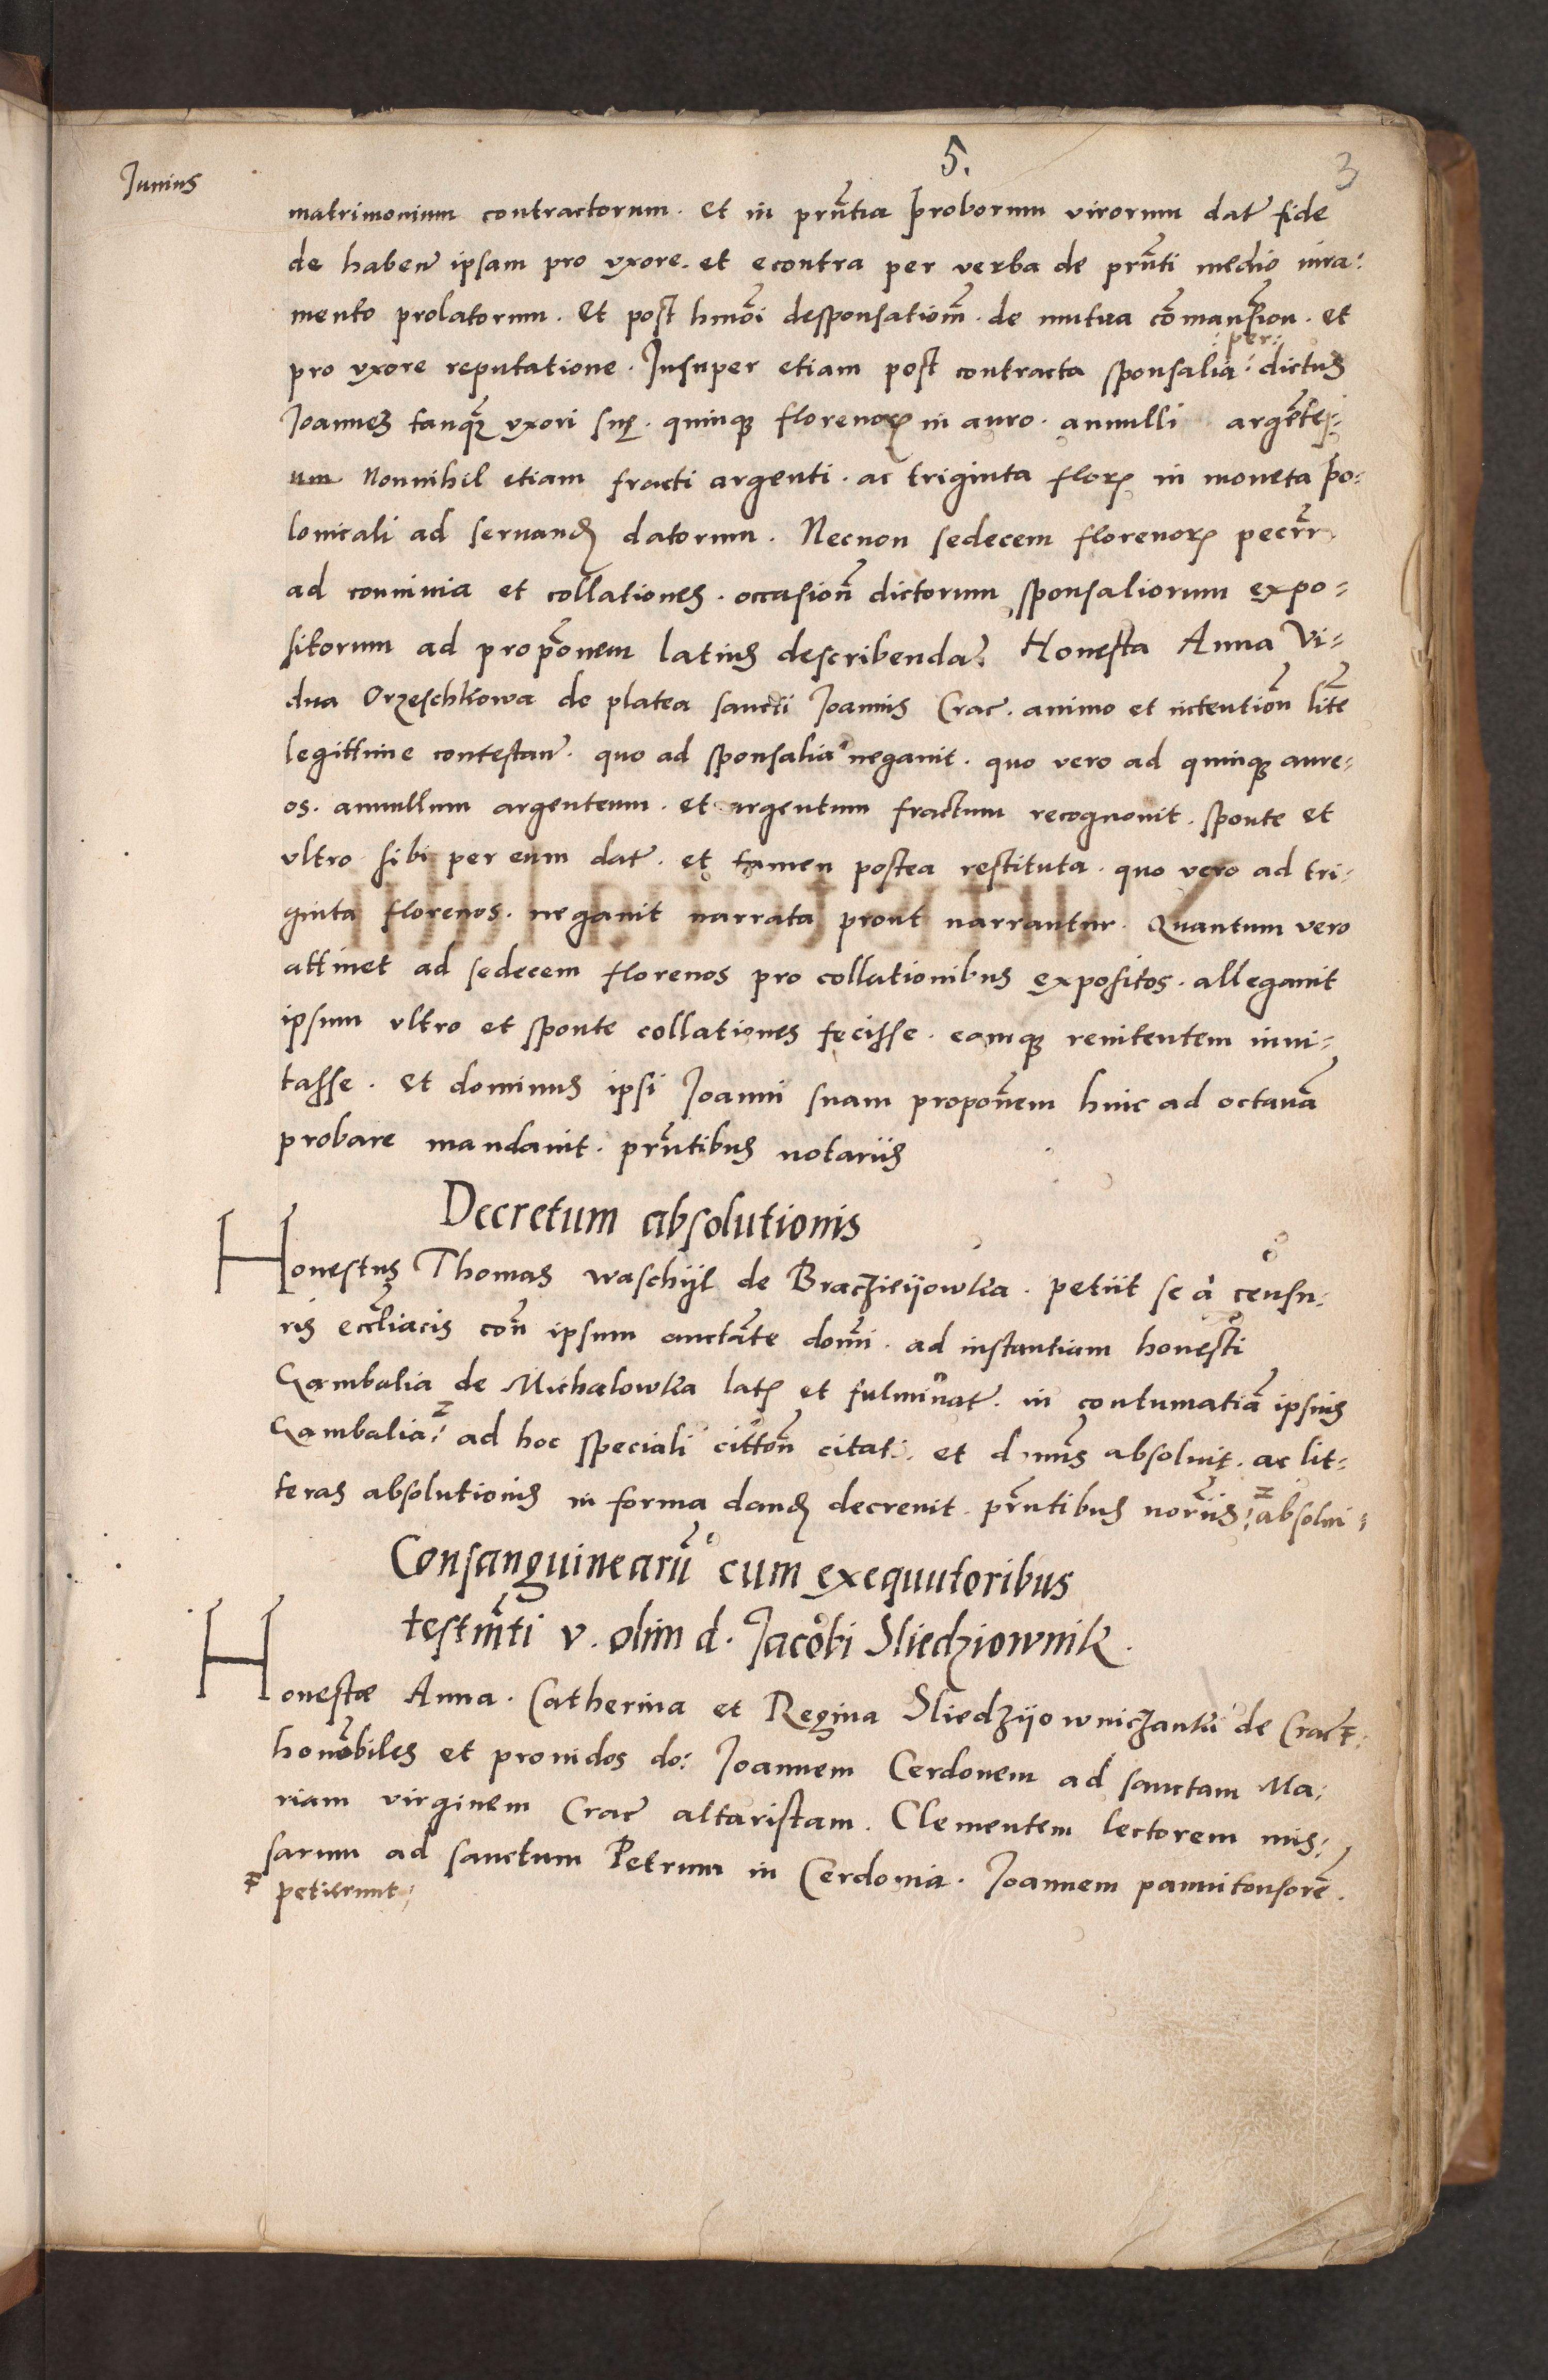 5.
3
Junius
matrimonium contractorum. et in prn̄tia proborum virorum dat̄ fide
de haben̄ ipsam pro vxore. et econtra per verba de prn̄ti medio iura:
mento prolatorum. Et post hmōi desponsationē. de mutua cōmansion̄. et
:per:
pro vxore reputatione. Insuper etiam post contracta sponsalia: dictus
Joannes tanq̨ vxori suę. quinq̨ florenoꝝ in auro. annulli argentej:
um Nonnihil etiam fracti argenti. ac triginta floꝝ in moneta po:
lonicali ad seruanđ datorum. Necnon sedecem florenoꝝ
ad conuiuia et collationes. occasion̄ dictorum sponsaliorum expo=
sitorum ad propōnem latius describenda: Honesta Anna Vi=
dua Orzeschkowa de platea sancti Joannis Crac̄. animo et intention̄ litē
legittime contestan̄. quo ad sponsalia negauit. quo vero ad quinq̨ aure=
os. annullum argenteum. et argentum fractum recognouit. sponte et
vltro sibi per eum dat̄. et tamen postea restituta. quo vero ad tri=
ginta florenos. negauit narrata prout narrantur. Quantum vero
attinet ad sedecem florenos pro collationibus expositos. allegauit
ipsum vltro et sponte collationes fecisse. eamq̨ renitentem inui=
tasse. Et dominus ipsi Joanni suam propōnem hinc ad octauā
probare mandauit. prn̄tibus notariis
Decretum absolutionis
Honestus Thomas waschijl de Braczieijowka. petiit se à censu:
ris eccl̄iacis con̄ ipsum auctāte domī. ad instantiam honesti
Gambalia de Michalowka latꝝ et fulminat̄. in contumatiā ipsius
Gambalia: ad hoc speciali cittōn citati. et dn̄us absoluit. ac lit=
teras absolutionis in forma danđ decreuit. prn̄tibus noriis: absolui:
Consanguinearū cum exequutoribus
testmn̄ti v. olim d. Jacobi Sliedziownik.
Honestæ Anna. Catherina et Regina Sliedzijowniczanki de Crac̄
honōbiles et prouidos do: Joannem Cerdonem ad sanctam Ma:
riam virginem Crac̄ altaristam. Clementem lectorem mis:
sarum ad sanctum Petrum in Cerdonia. Joannem pannitonsorē.
petierunt: